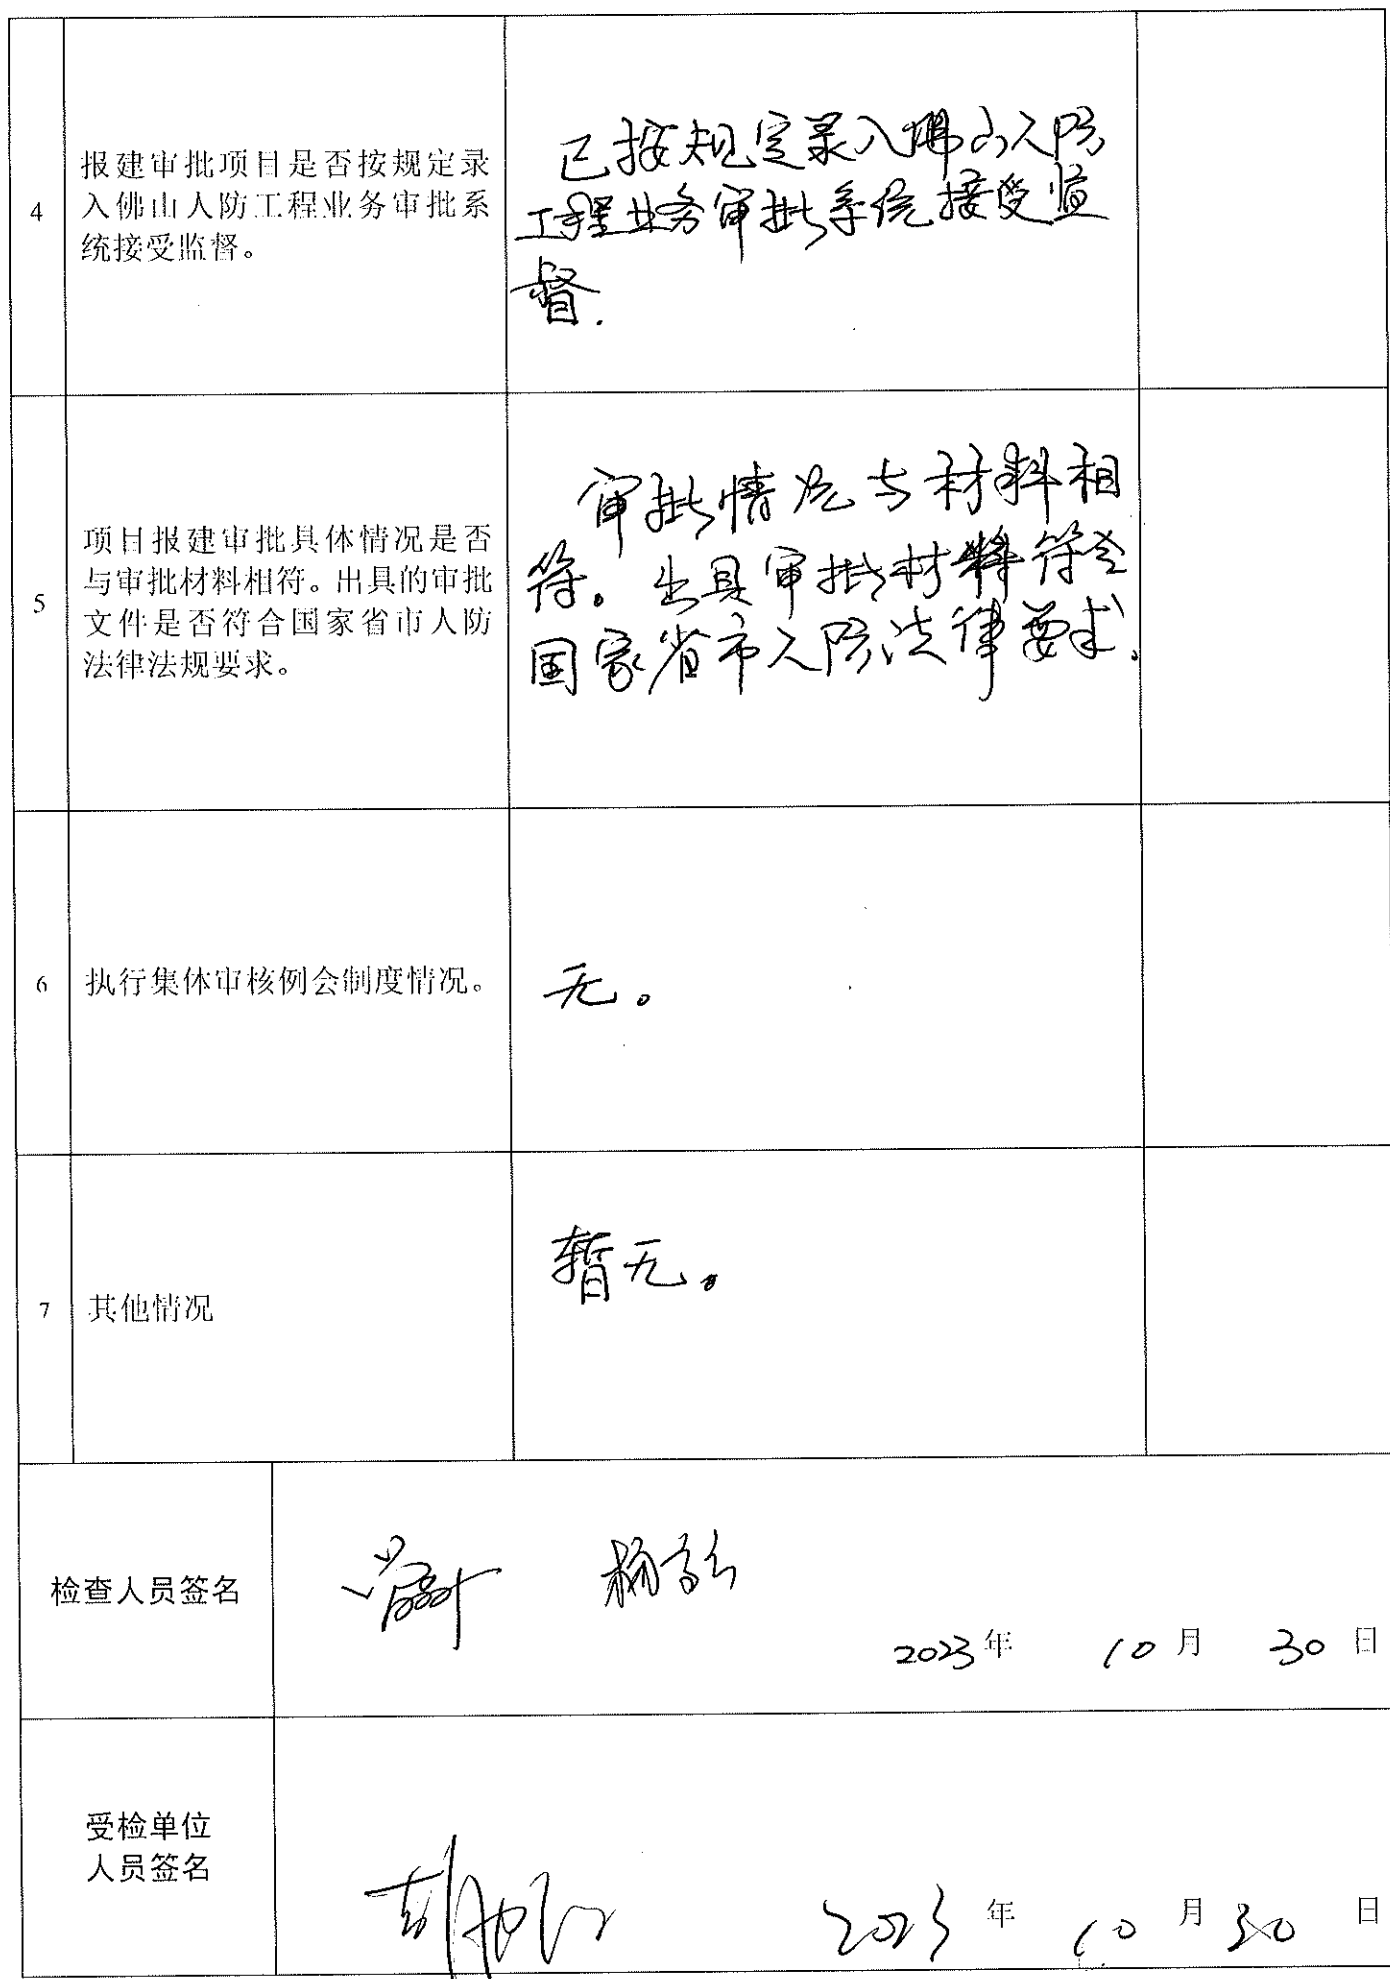 4
报建审批项目是否按规定录
入佛山人防工程业务审批系
统接受监督。
已按规定录入佛山人防
工程业务审批系统接受监
督.
5
项目报建审批具体情况是否
与审批材料相符。出具的审批
文件是否符合国家省市人防
法律法规要求。
审批情况与材料相
符。出具审批材料符合
国家省市人防法律要求。
6
执行集体审核例会制度情况。
无。
7
其他情况
暂无。
检查人员签名
2023年 10月 30日
受检单位
人员签名
2023年 10月 30日